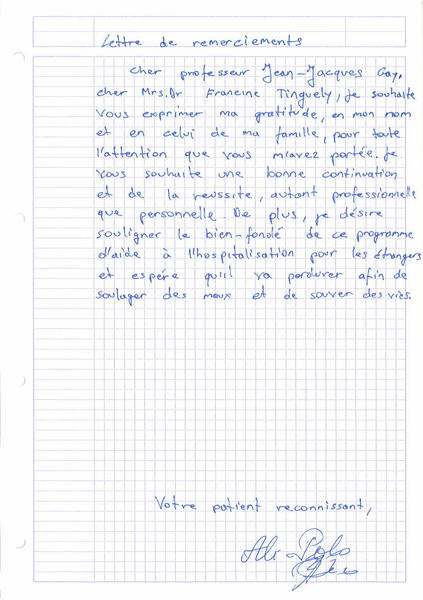 Lettre de remerciements
Cher professeur Jean-Jacques Gay,
cher Mrs.Dr Francine Tinguely, je souhaite
vous exprimer ma gratitude, en mon nom
et en celui de ma famille, pour toute
l'attention que vous m'avez portée. Je
vous souhaite une bonne continuation
et de la reussite, autant professionnelle
que personnelle. De plus, je désire
souligner le bien-fondé de ce programme
d'aide à l'hospitalisation pour les étrangers
et espère qu'il va perdurer afin de
soulager des maux et de sauver des vies.
Votre patient reconnissant,